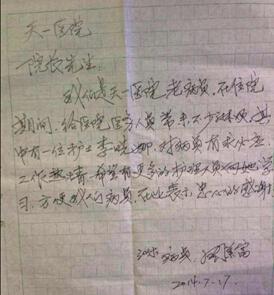 天一医院
院长先生:
我们是天一医院老病员,在住院
期间,给医院医务人员带来不少麻烦,其
中有一位护士李晓娜,对病员有求必应,
工作热情,希望有更多的护理人员向她学
习,方便我们病员,在此表示衷心的感谢
病员
2014.7.17.